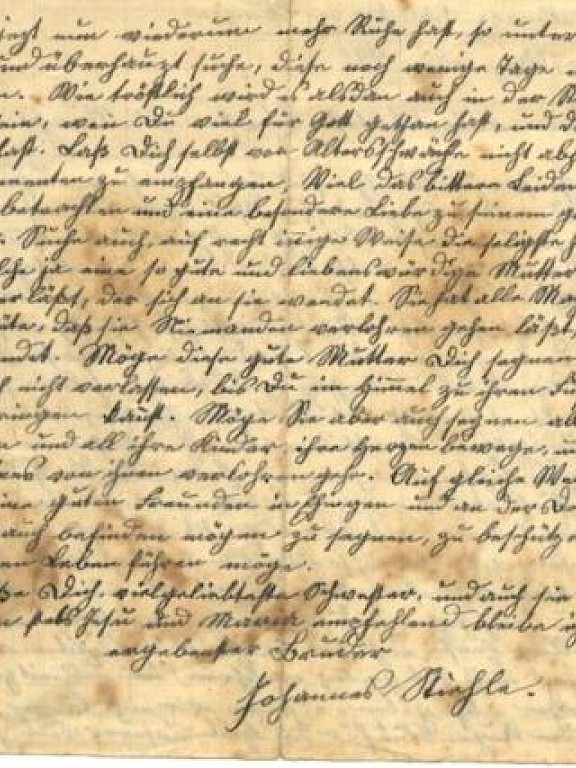 jetzt nun wiederum mehr Ruhe hast, so unter
und überhaupt suche, diese noch wenige Tage
Wie tröstlich wird es alsdan auch in der
sein, wen Du viel für Gott gethan hast, und
Laß Dich selbst von Altersschwäche nicht
zu empfangen, Viel das bittere Leiden
betrachten und eine besondere Liebe zu seinem
Suche auch, auf recht innige Weise die seligste
ja eine so gute und liebenswürdige Mutter
verläßt, der sich an sie wendet. Sie hat alle
daß sie Niemanden verlohren gehen läßt,
Möge diese gute Mutter Dich segnen
nicht verlassen, bis Du im Himmel zu ihren
kanst. Möge Sie aber auch segnen
und all ihre Kinder ihre Herzen bewege,
von ihnen verlohren gehe. Auf gleiche
guten Freunden in und an der
auch befinden mögen zu segnen, zu beschützen
Leben führen möge.
Dich, vielgeliebteste Schwester, und auch sie
stets Jesu und Maria empfehlend bleibe
ergebenster Bruder
Johannes Stiehle.